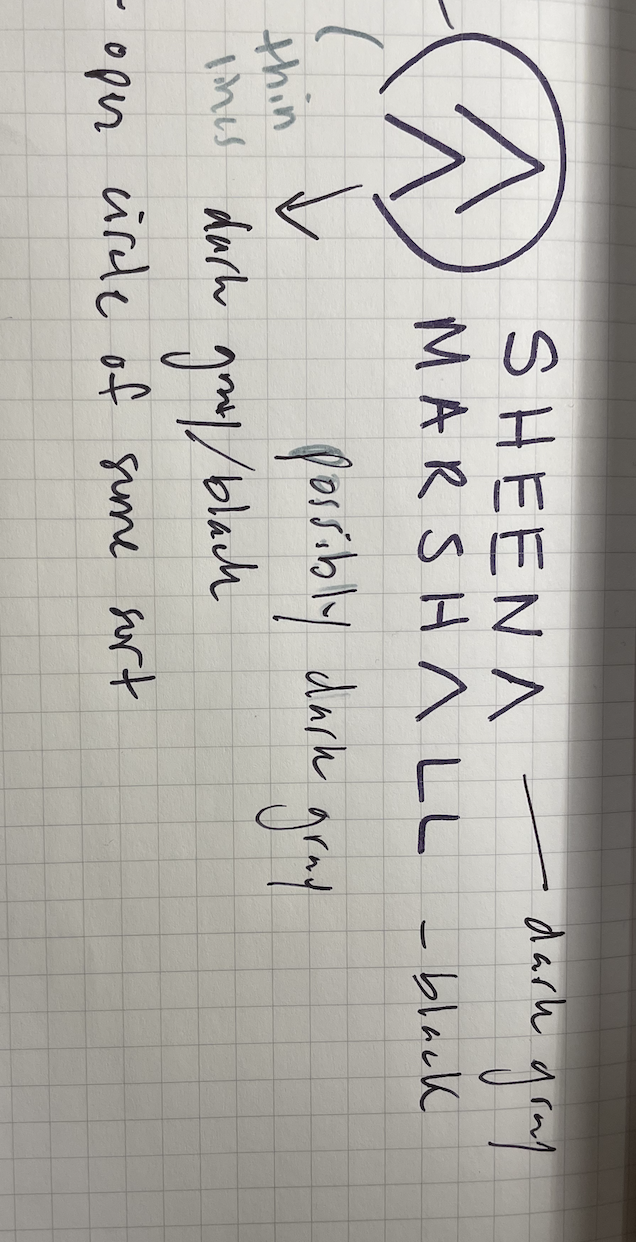 SHEENΛ — dark gray
MARSHΛLL - black
possibly dark gray
thin
lines
dark gray/black
- open circle of some sort